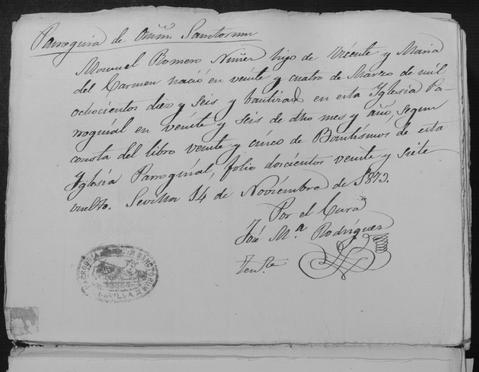 Parroquia de Omn̄m Sanctorum
Manuel Romero Nuñez hijo de Vicente y Maria
del Carmen nació en veinte y cuatro de Marzo de mil
ochocientos diez y seis y bautizado en esta Iglesia Pa-
rroquial en veinte y seis de dho mes y año, segun
consta del libro veinte y cinco de Bautismos de esta
Iglesia Parroquial, folio doscientos veinte y siete
vuelto. Sevilla 14 de Noviembre de 1873.
Por el Cura
José Mª Rodriguez
SEVILLA